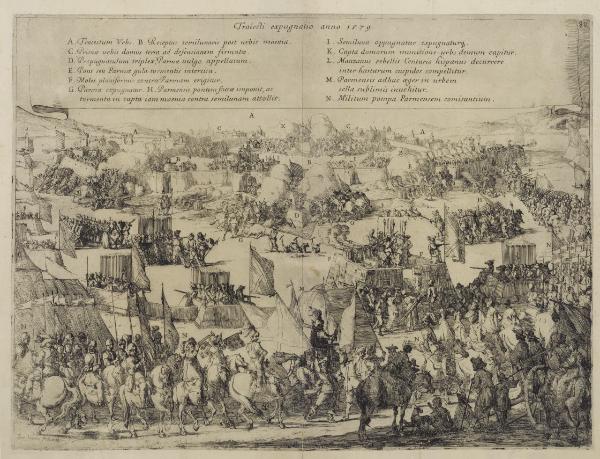 Traiecti expugnatio anno 1579
A. Traiectum Urbs. B. Receptus semilunaris post urbis moenia.
C. Prima urbis domus terra ad defensionem firmata.
D. Propugnaculum triplex Parma vulgo appellatum.
E. Pons sub Parmae gula tormentis interclusa.
F. Moles planiforme contra Parmam erigitur.
G. Parma expugnatur. H. Parmensis pontem fossae imponit, ac
tormenta in capta iam moenia contra semilunam attollit.
I. Semiluna oppugnatur expugnaturq.
K. Capta domorum munitione urbs demum capitur.
L. Manzanus rebellis Centurio hispanus decurrere
inter hastarum cuspides compellitur.
M. Parmensis adhuc aeger in urbem
sella sublimis invehitur.
N. Militum pompa Parmensem comitantium.
A
C
K
C
A
B
D
G
N